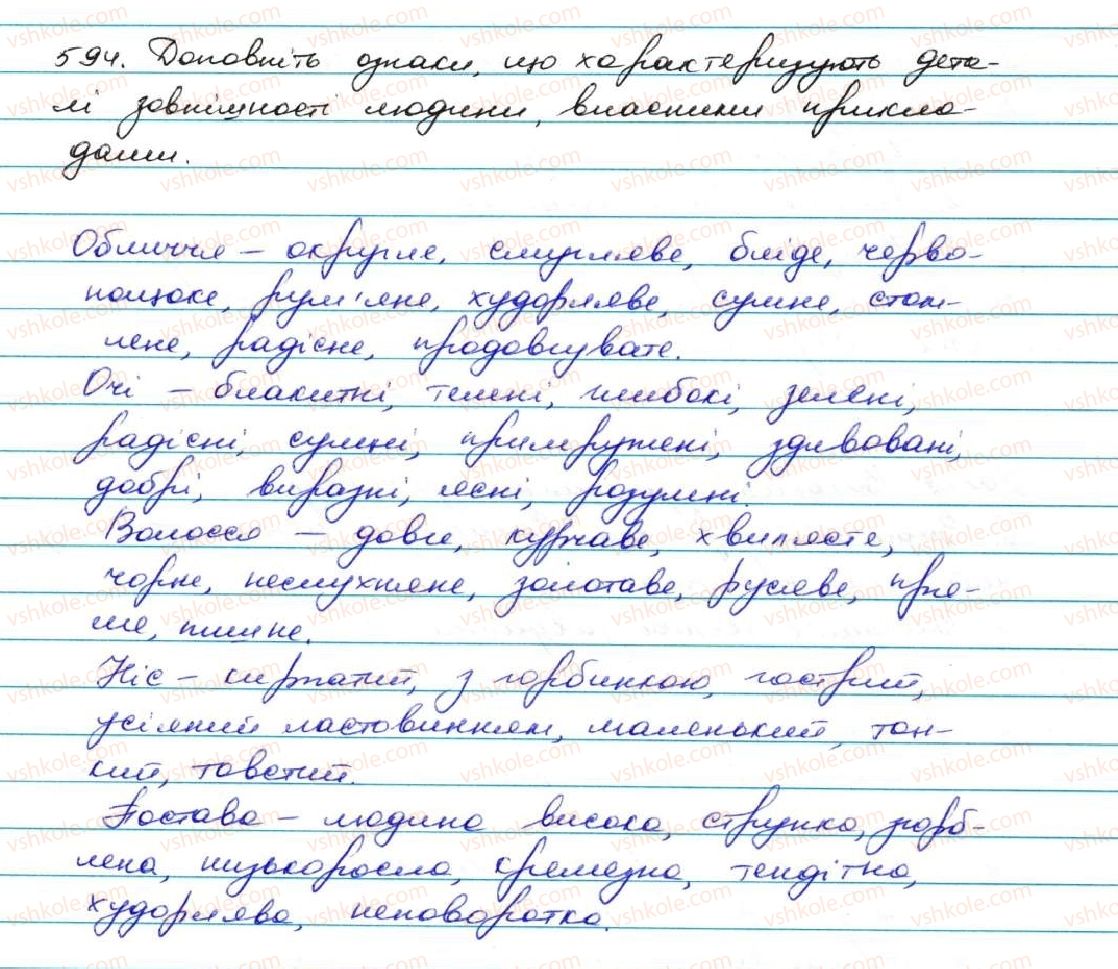 594. Доповніть ознаки, що характеризують дета-
лі зовнішності людини, власними прикла-
дами.
Обличчя – округле, смугляве, бліде, черво-
нощоке, рум'яне, худорляве, сумне, стом-
лене, радісне, продовгувате.
Очі – блакитні, темні, глибокі, зелені,
радісні, сумні, примружені, здивовані,
добрі, виразні, ясні, розумні.
Волосся – довге, кучяве, хвилясте,
чорне, неслухняне, золотаве, русяве, пря-
ме, пишне.
Ніс – кирпатий, з горбинкою, гострий,
усіяний ластовинням, маленький, тон-
кий, товстий.
Постава – людина висока, струнка, згорб-
лена, низькоросла, кремезна, тендітна,
худорлява, неповоротка.